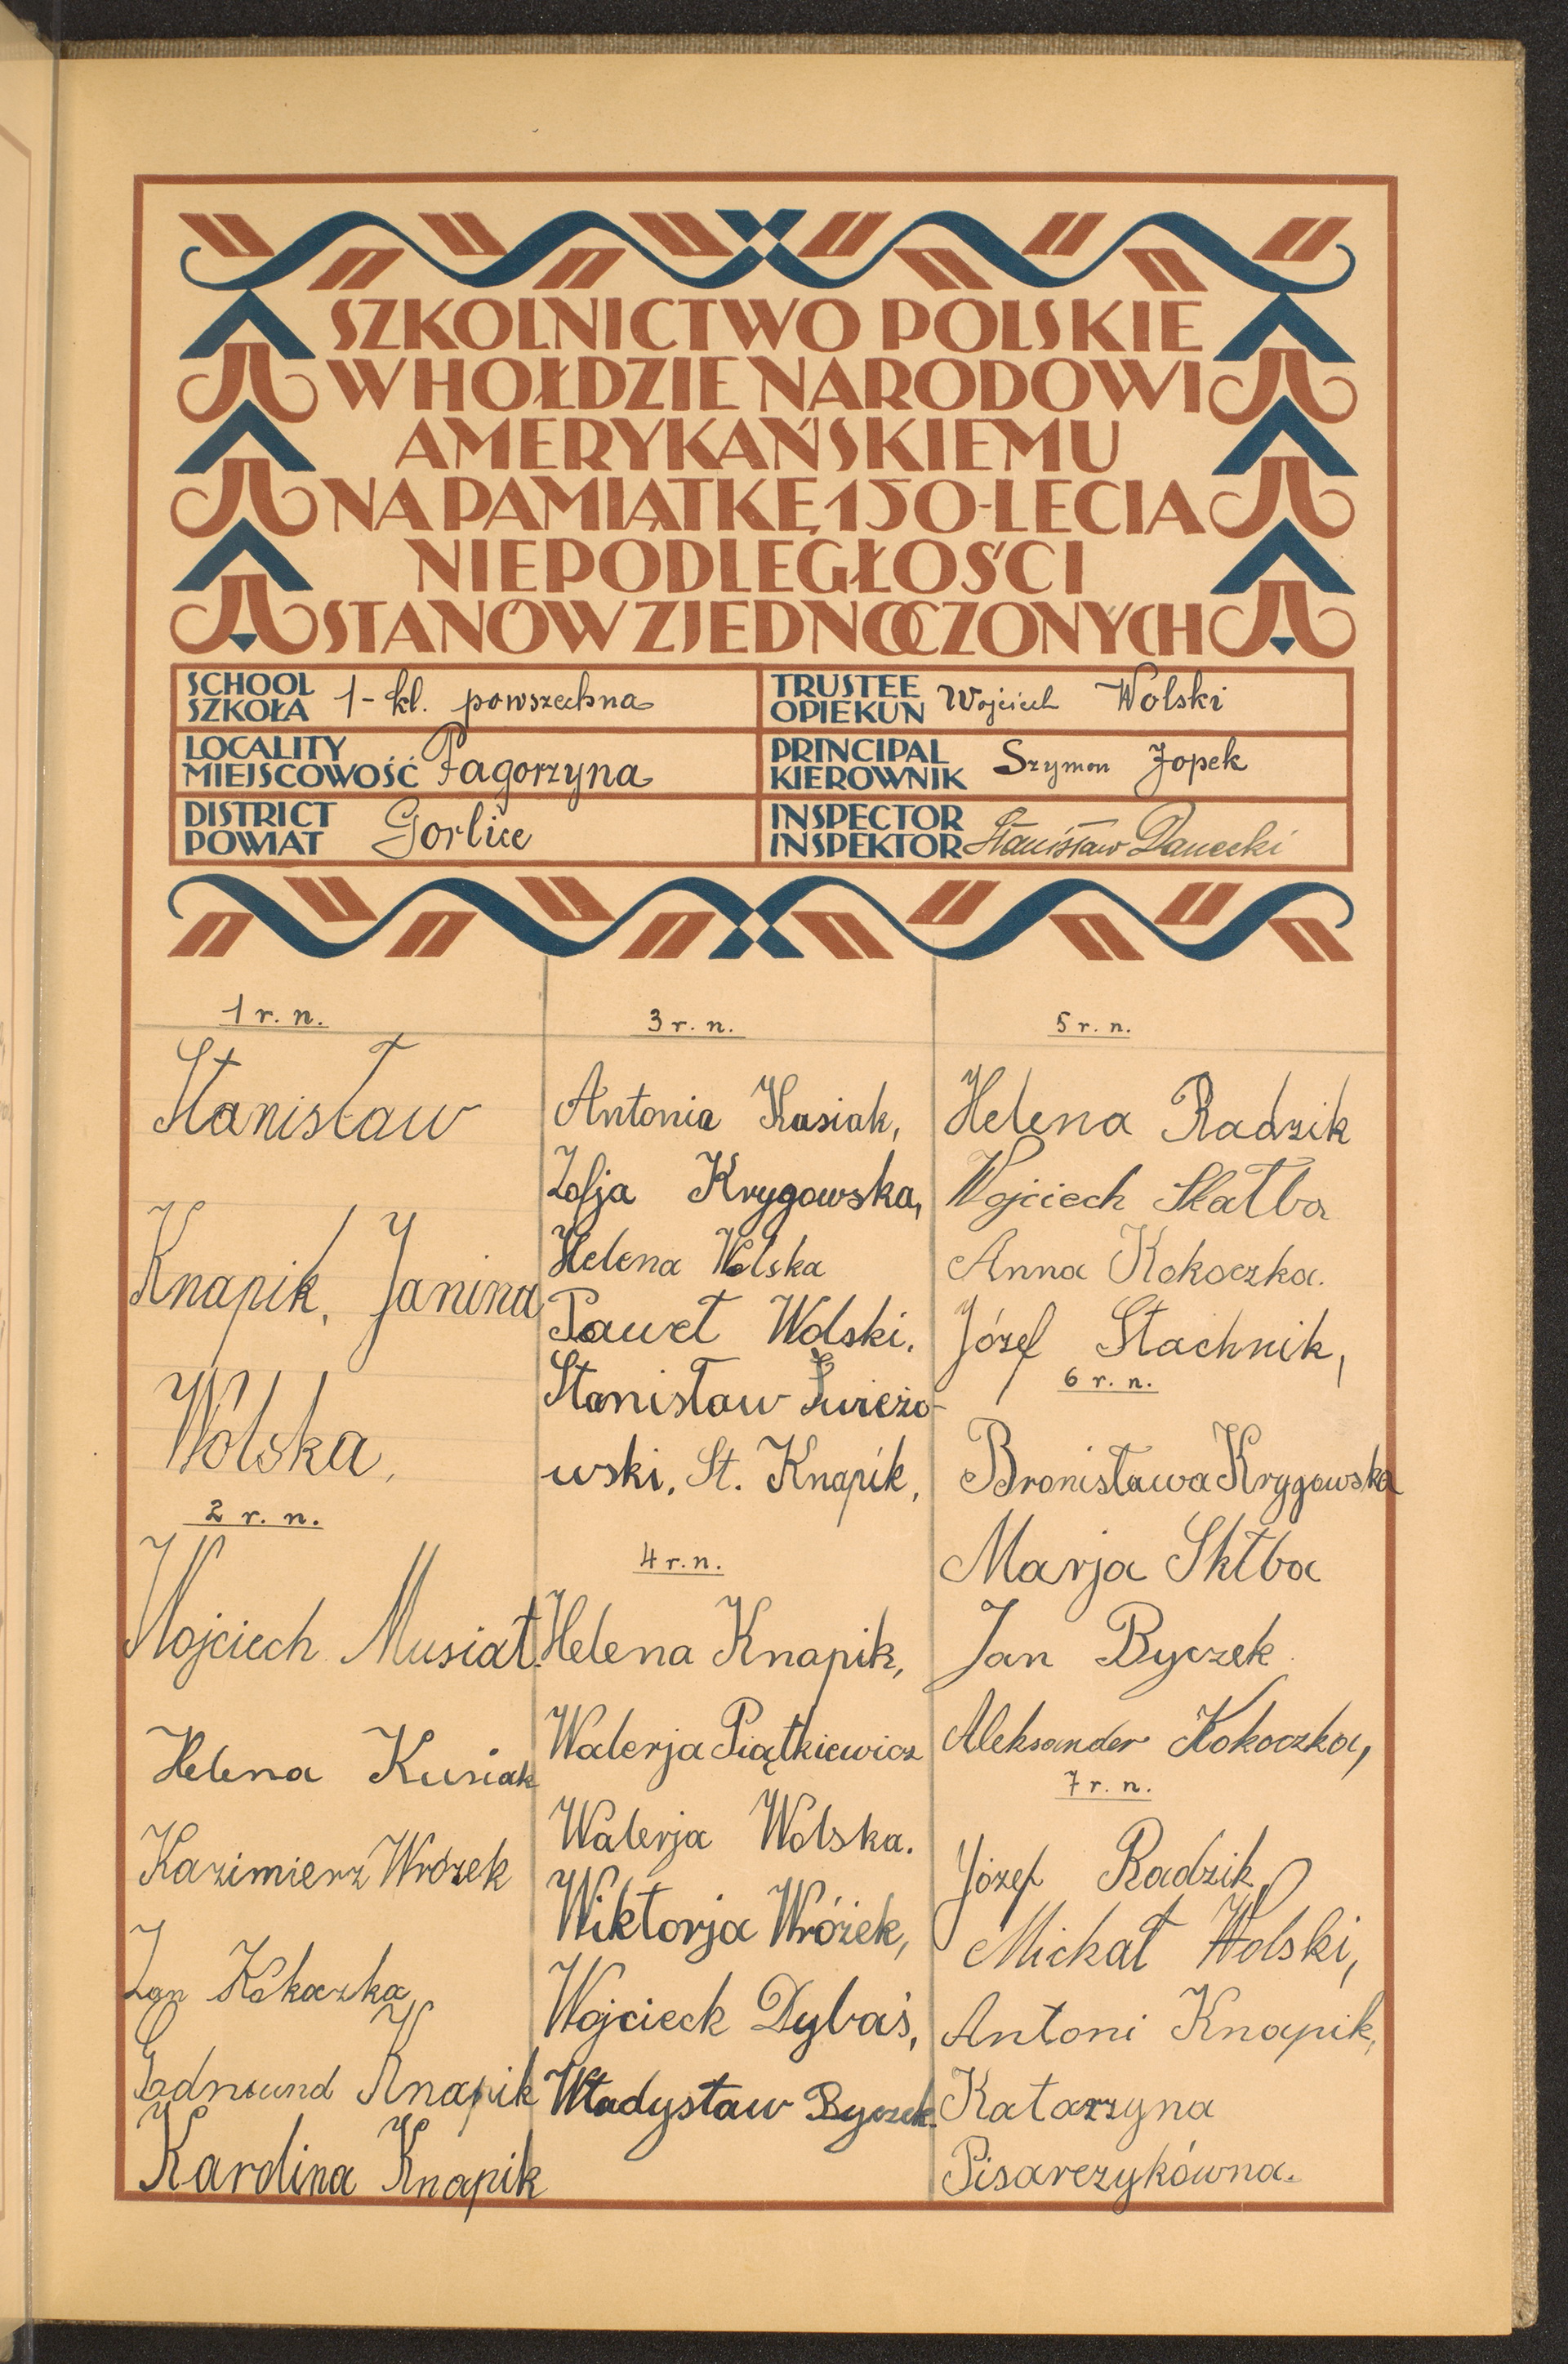 SZKOLNICTWO POLSKIE
W HOŁDZIE NARODOWI
AMERYKAŃSKIEMU
NA PAMIĄTKĘ 150-LECIA
NIEPODLEGŁOŚCI
STANÓW ZJEDNOCZONYCH
SCHOOL
SZKOŁA 1-kl. powszechna
TRUSTEE
OPIEKUN Wojciech Wolski
LOCALITY
MIEJSCOWOŚĆ Pagorzyna
PRINCIPAL
KIEROWNIK Szymon Jopek
DISTRICT
POWIAT Gorlice
INSPECTOR
INSPEKTOR Stanisław Danecki
1 r. n.
Stanisław
Knapik, Janina
Wolska,
2 r. n.
Wojciech Musiał.
Helena Kusiak
Kazimierz Wrózek
Jan Kokoczka
Edmund Knapik
Karolina Knapik
3 r. n.
Antonia Kusiak,
Zofja Krygowska,
Helena Wolska
Paweł Wolski.
Stanisław Świeżo-
wski, St. Knapik,
4 r. n.
Helena Knapik,
Walerja Piątkiewicz
Walerja Wolska.
Wiktorja Wróżek,
Wojciech Dybaś,
Władysław Byczek.
5 r. n.
Helena Radzik
Wojciech Skałba
Anna Kokoczka.
Józef Stachnik,
6 r. n.
Bronisława Krygowska
Marja Skłba
Jan Byczek
Aleksander Kokoczka,
7 r. n.
Józef Radzik,
Michał Wolski,
Antoni Knapik,
Katarzyna
Pisarczykówna.